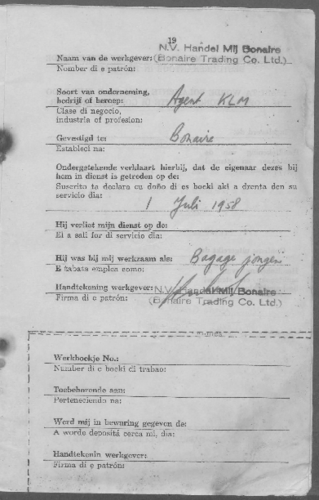 19
N.V. Handel Mij Bonaire
Naam van de werkgever: (Bonaire Trading Co. Ltd.)
Number di e patrón:
Soort van onderneming,
bedrijf of beroep: Agent KLM
Clase di negocio,
industria of profesion:
Gevestigd te: Bonaire
Estableci na:
Ondergetekende verklaart hierbij, dat de eigenaar dezes bij
hem in dienst is getreden op de:
Suscrito ta declara cu doño di es boeki aki a drenta den su
servicio dia:
1 Juli 1958
Hij verliet mijn dienst op de:
El a sali for di servicio dia:
Hij was bij mij werkzaam als: Bagage jongen
E tabata emplea como:
Handtekening werkgever: N.V. Handel Mij Bonaire
Firma di e patrón: (Bonaire Trading Co. Ltd.)
Werkboekje No.:
Number di e boeki di trabao:
Toebehorende aan:
Perteneciendo na:
Werd mij in bewaring gegeven de:
A worde deposita cerca mi, dia:
Handtekenin werkgever:
Firma di e patrón: